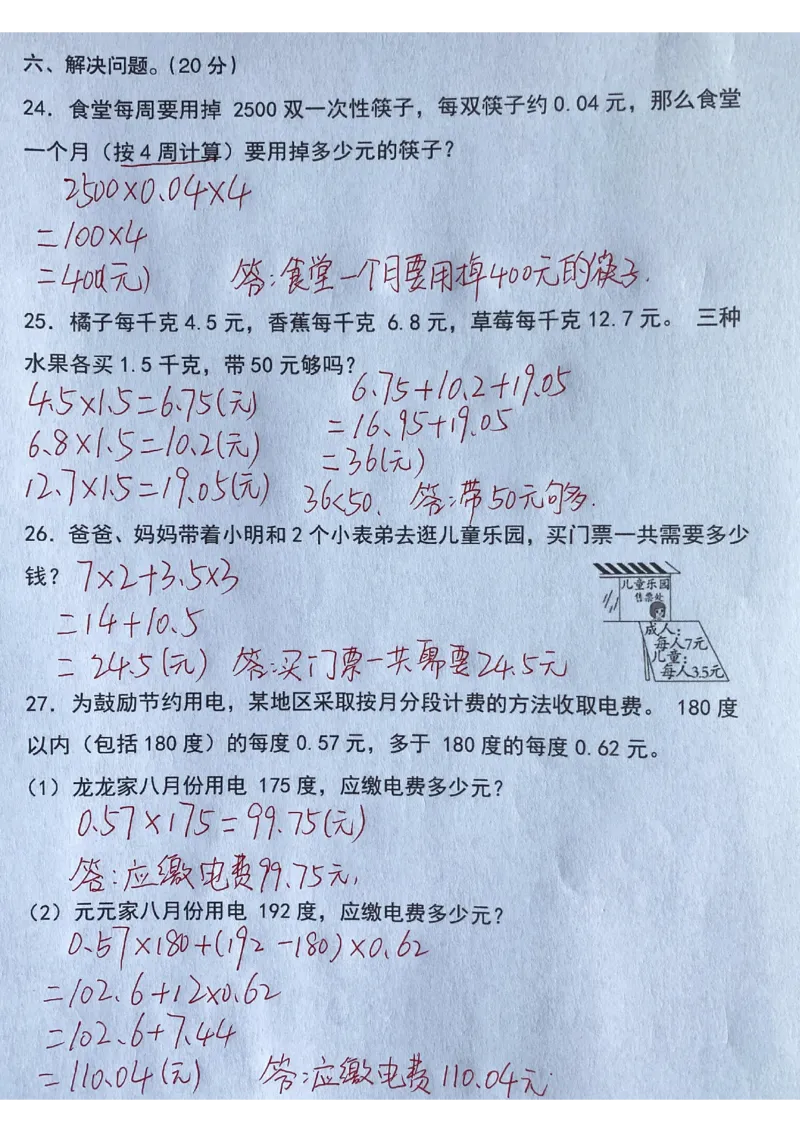 六、解决问题。(20分)
24. 食堂每周要用掉 2500 双一次性筷子，每双筷子约 0.04 元，那么食堂
一个月（按 4 周计算）要用掉多少元的筷子？
2500×0.04×4
=100×4
=400(元)	答:食堂一个月要用掉400元的筷子.
25. 橘子每千克 4.5 元，香蕉每千克 6.8 元，草莓每千克 12.7 元。 三种
水果各买 1.5 千克，带 50 元够吗？
4.5×1.5=6.75(元)	6.75+10.2+19.05
6.8×1.5=10.2(元)	=16.95+19.05
=36(元)
12.7×1.5=19.05(元)	36<50. 答:带50元够多.
26. 爸爸、妈妈带着小明和 2 个小表弟去逛儿童乐园，买门票一共需要多少
钱？ 7×2+3.5×3
=14+10.5
=24.5(元) 答:买门票一共需要24.5元
儿童乐园
售票处
成人:
每人7元
儿童:
每人3.5元
27. 为鼓励节约用电，某地区采取按月分段计费的方法收取电费。 180 度
以内（包括 180 度）的每度 0.57 元，多于 180 度的每度 0.62 元。
(1) 龙龙家八月份用电 175 度，应缴电费多少元？
0.57×175=99.75(元)
答:应缴电费99.75元.
(2) 元元家八月份用电 192 度，应缴电费多少元？
0.57×180+(192-180)×0.62
=102.6+12×0.62
=102.6+7.44
=110.04(元)	答:应缴电费110.04元